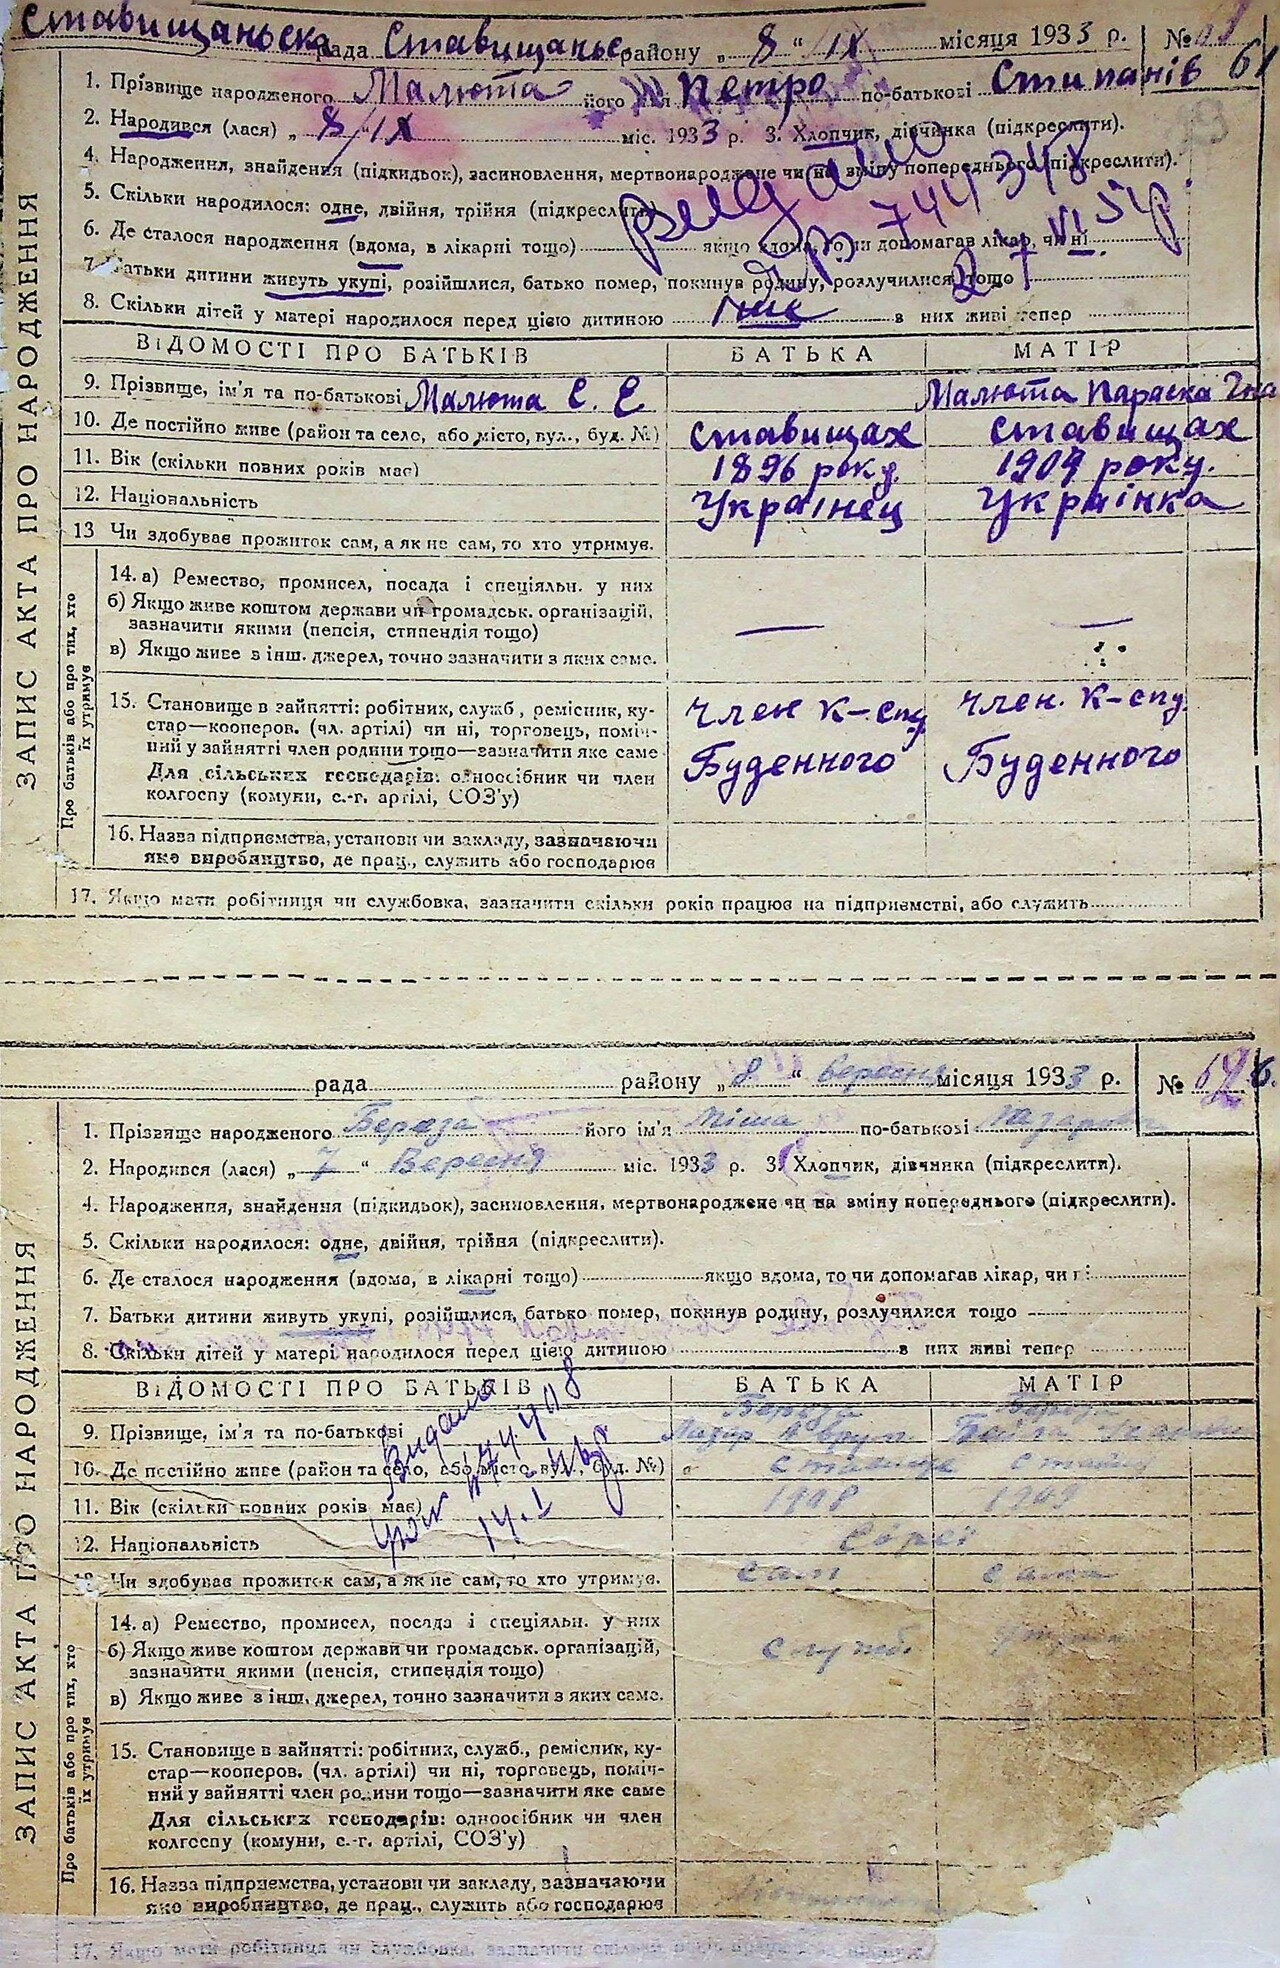 Ставищаньска рада Ставищаньс. району „ 8 “ IX місяця 1933 р. № 61
1. Прізвище народженого Малюта його ім'я Петро по-батькові Стипанів
2. Народився (лася) „ 8/IX міс. 1933 р. 3. Хлопчик, дівчинка (підкреслити).
4. Народження, знайдення (підкидьок), засиновлення, мертвонароджене чи на зміну попереднього (підкреслити).
5. Скільки народилося: одне, двійня, трійня (підкреслити)
6. Де сталося народження (вдома, в лікарні тощо) якщо вдома, то чи допомагав лікар, чи ні
7. Батьки дитини живуть укупі, розійшлися, батько помер, покинув родину, розлучилися тощо
8. Скільки дітей у матері народилося перед цією дитиною в них живі тепер
744348
ВІДОМОСТІ ПРО БАТЬКІВ БАТЬКА МАТІР
9. Прізвище, ім'я та по-батькові Малюта С. Є Малюта Параска
10. Де постійно живе (район та село, або місто, вул., буд. №) Ставищах Ставищах
11. Вік (скільки повних років має) 1896 року. 1909 року.
12. Національність Українец Українка
13 Чи здобуває прожиток сам, а як не сам, то хто утримує.
ЗАПИС АКТА ПРО НАРОДЖЕННЯ
Про батьків або про тих, хто їх утримує
14. а) Ремество, промисел, посада і спеціяльн. у них
б) Якщо живе коштом держави чи громадськ. організацій,
зазначити якими (пенсія, стипендія тощо)
в) Якщо живе з інш. джерел, точно зазначити з яких саме.
15. Становище в зайнятті: робітник, служб., ремісник, ку-
стар—кооперов. (чл. артілі) чи ні, торговець, поміч-
ний у зайнятті член родини тощо—зазначити яке саме
Для сільських господарів: одноосібник чи член
колгоспу (комуни, с.-г. артілі, СОЗ'у)
член к-спу Буденного член. к-спу. Буденного
16. Назва підприємства, установи чи закладу, зазначаючи
яке виробництво, де прац., служить або господарює
17. Якщо мати робітниця чи службовка, зазначити скільки років працює на підприємстві, або служить
рада району „ 8 “ вересня місяця 1933 р. № 62
1. Прізвище народженого Береза його ім'я Міша по-батькові
2. Народився (лася) „ 7 “ Вересня міс. 1933 р. 3. Хлопчик, дівчинка (підкреслити).
4. Народження, знайдення (підкидьок), засиновлення, мертвонароджене чи на зміну попереднього (підкреслити).
5. Скільки народилося: одне, двійня, трійня (підкреслити).
6. Де сталося народження (вдома, в лікарні тощо) якщо вдома, то чи допомагав лікар, чи ні
7. Батьки дитини живуть укупі, розійшлися, батько помер, покинув родину, розлучилися тощо
8. Скільки дітей у матері народилося перед цією дитиною в них живі тепер
ВІДОМОСТІ ПРО БАТЬКІВ БАТЬКА МАТІР
9. Прізвище, ім'я та по-батькові Береза Береза
10. Де постійно живе (район та село, або місто, вул., буд. №)
11. Вік (скільки повних років має) 1908 1909
12. Національність Євреї
13. Чи здобуває прожиток сам, а як не сам, то хто утримує. сам сама
ЗАПИС АКТА ПРО НАРОДЖЕННЯ
Про батьків або про тих, хто їх утримує
14. а) Ремество, промисел, посада і спеціяльн. у них
б) Якщо живе коштом держави чи громадськ. організацій, служб.
зазначити якими (пенсія, стипендія тощо)
в) Якщо живе з інш. джерел, точно зазначити з яких саме.
15. Становище в зайнятті: робітник, служб., ремісник, ку-
стар—кооперов. (чл. артілі) чи ні, торговець, поміч-
ний у зайнятті член родини тощо—зазначити яке саме
Для сільських господарів: одноосібник чи член
колгоспу (комуни, с.-г. артілі, СОЗ'у)
16. Назва підприємства, установи чи закладу, зазначаючи
яке виробництво, де прац., служить або господарює
17. Якщо мати робітниця чи службовка, зазначити скільки років працює на